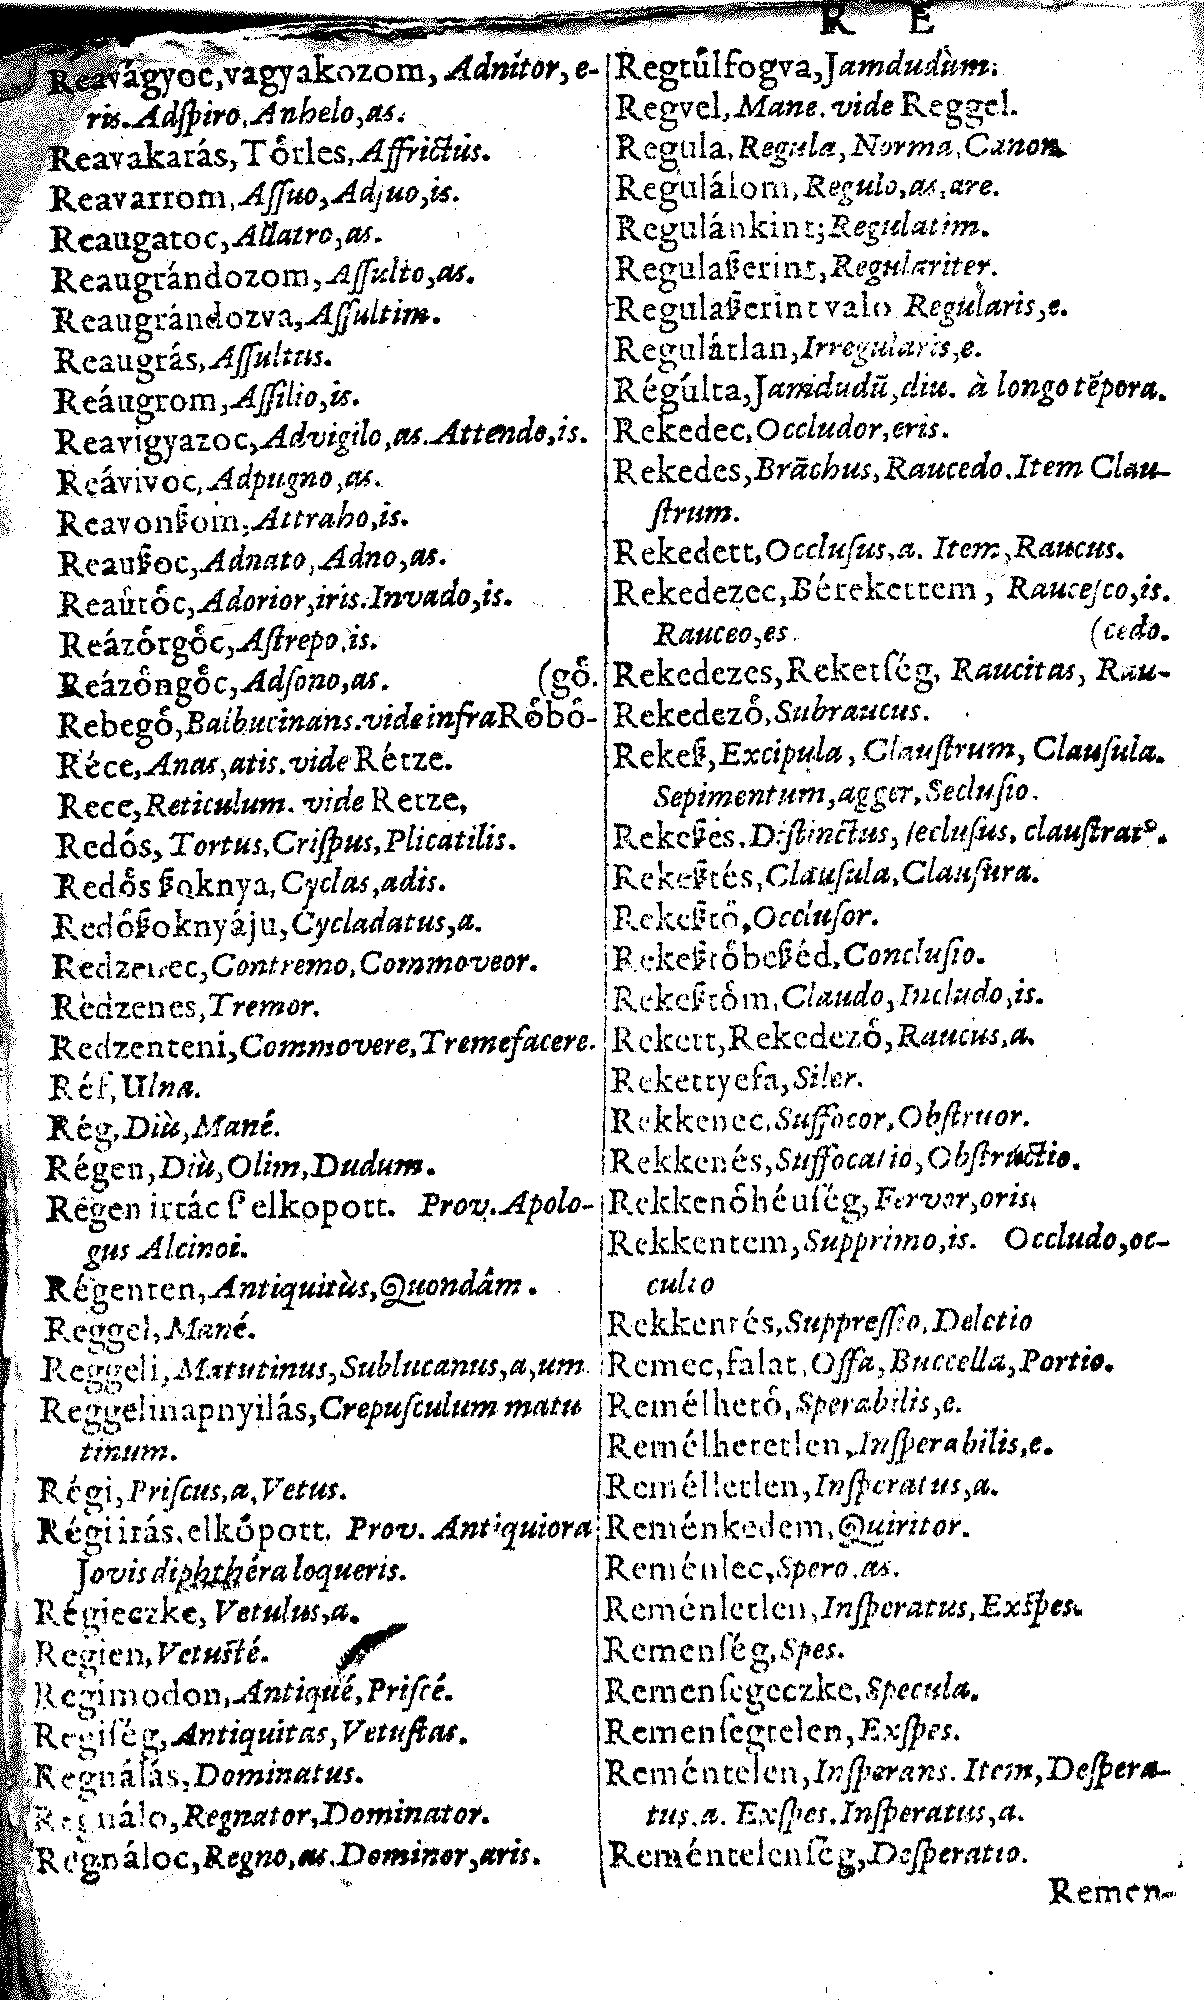 R E
Reavágyoc,vagyakozom, Adnítor, e-
ris.Adſpiro,Anhelo,as.
Reavakarás,Tőrles,Affrictus.
Reavarrom,Aſſuo,Adjuo,is.
Reaugatoc,Allatro,as.
Reaugrándozom,Aſſulto,as.
Reaugrándozva,Aſſultim.
Reaugrás,Aſſultus.
Reáugrom,Aſſilio,is.
Reavigyazoc,Advigilo,as.Attendo,is.
Reávivoc,Adpugno,as.
Reavonßom,Attraho,is.
Reaußoc,Adnato,Adno,as.
Reaûtőc,Adorior,iris.Invado,is.
Reázőrgőc,Aſtrepo,is.
Reázőngőc,Adſono,as. (gő.
Rebegő,Balbucinans.vide infra Rőbő-
Réce,Anas,atis.vide Rétze.
Rece,Reticulum. vide Retze,
Redős,Tortus,Criſpus,Plicatilis.
Redős ßoknya,Cyclas,adis.
Redőßoknyáju,Cycladatus,a.
Redzenec,Contremo,Commoveor.
Redzenes,Tremor.
Redzenteni,Commovere,Tremefacere.
Réf,Ulna.
Rég,Diù,Mané.
Régen,Diù,Olim,Dudum.
Régen irtác ſ elkopott. Prov.Apolo-
gus Alcinoi.
Régenten,Antiquitùs,Quondâm.
Reggel,Mané.
Reggeli,Matutinus,Sublucanus,a,um
Reggelinapnyilás,Crepuſculum matu
tinum.
Régi,Priſcus,a,Vetus.
Régiirás,elkőpott. Prov. Antiquiora
Jovis diphthéra loqueris.
Régieczke,Vetulus,a.
Regien,Vetuſté.
Regimodon,Antiqué,Priſcé.
Regiſég,Antiquitas,Vetuſtas.
Regnálás,Dominatus.
Regnálo,Regnator,Dominator.
Regnáloc,Regno,as.Dominor,aris.
Regtűlfogva,Jamdudùm.
Regvel,Mane.vide Reggel.
Regula,Regula,Norma,Canon
Regulálom,Regulo,as,are.
Regulánkint;Regulatim.
Regulaßerint,Regulariter.
Regulaßerint valo Regularis,e.
Regulátlan,Irregularis,e.
Régúlta,Jamdudū,diu. à longo tēpora.
Rekedec,Occludor,eris.
Rekedes,Brāchus,Raucedo.Item Clau-
ſtrum.
Rekedett,Occluſus,a. Item,Raucus.
Rekedezec,Bérekettem, Rauceſco,is.
Rauceo,es. (cedo.
Rekedezes,Reketſég, Raucitas, Rau-
Rekedező,Subraucus.
Rekeß,Excipula,Clauſtrum,Clauſula.
Sepimentum,agger,Secluſio.
Rekeßés,Diſtinctus,ſecluſus,clauſtrat⁹.
Rekeßtés,Clauſula,Clauſura.
Rekeßtő,Occluſor.
Rekeßtőbeßéd,Concluſio.
Rekeßtőm,Claudo,Includo,is.
Rekett,Rekedező,Raucus,a.
Rekettyefa,Siler.
Rekkenec,Suffocor,Obſtruor.
Rekkenés,Suffocatio,Obſtructio.
Rekkenőhéuſég,Fervor,oris,
Rekkentem,Supprimo,is. Occludo,oc-
culto
Rekkentés,Suppreſſio,Deletio
Remec,falat,Offa,Buccella,Portio.
Remélhető,Sperabilis,e.
Remélhetetlen,Inſperabilis,e.
Reméllletlen,Inſperatus,a.
Reménkedem,Quiritor.
Reménlec,Spero,as.
Reménletlen,Inſperatus,Exſpes.
Remenſég,Spes.
Remenſegeczke,Specula.
Remenſegtelen,Exſpes.
Reméntelen,Inſperans. Item,Deſpera-
tus,a. Exſpes.Inſperatus,a.
Reméntelenſég,Deſperatio.
Remen-